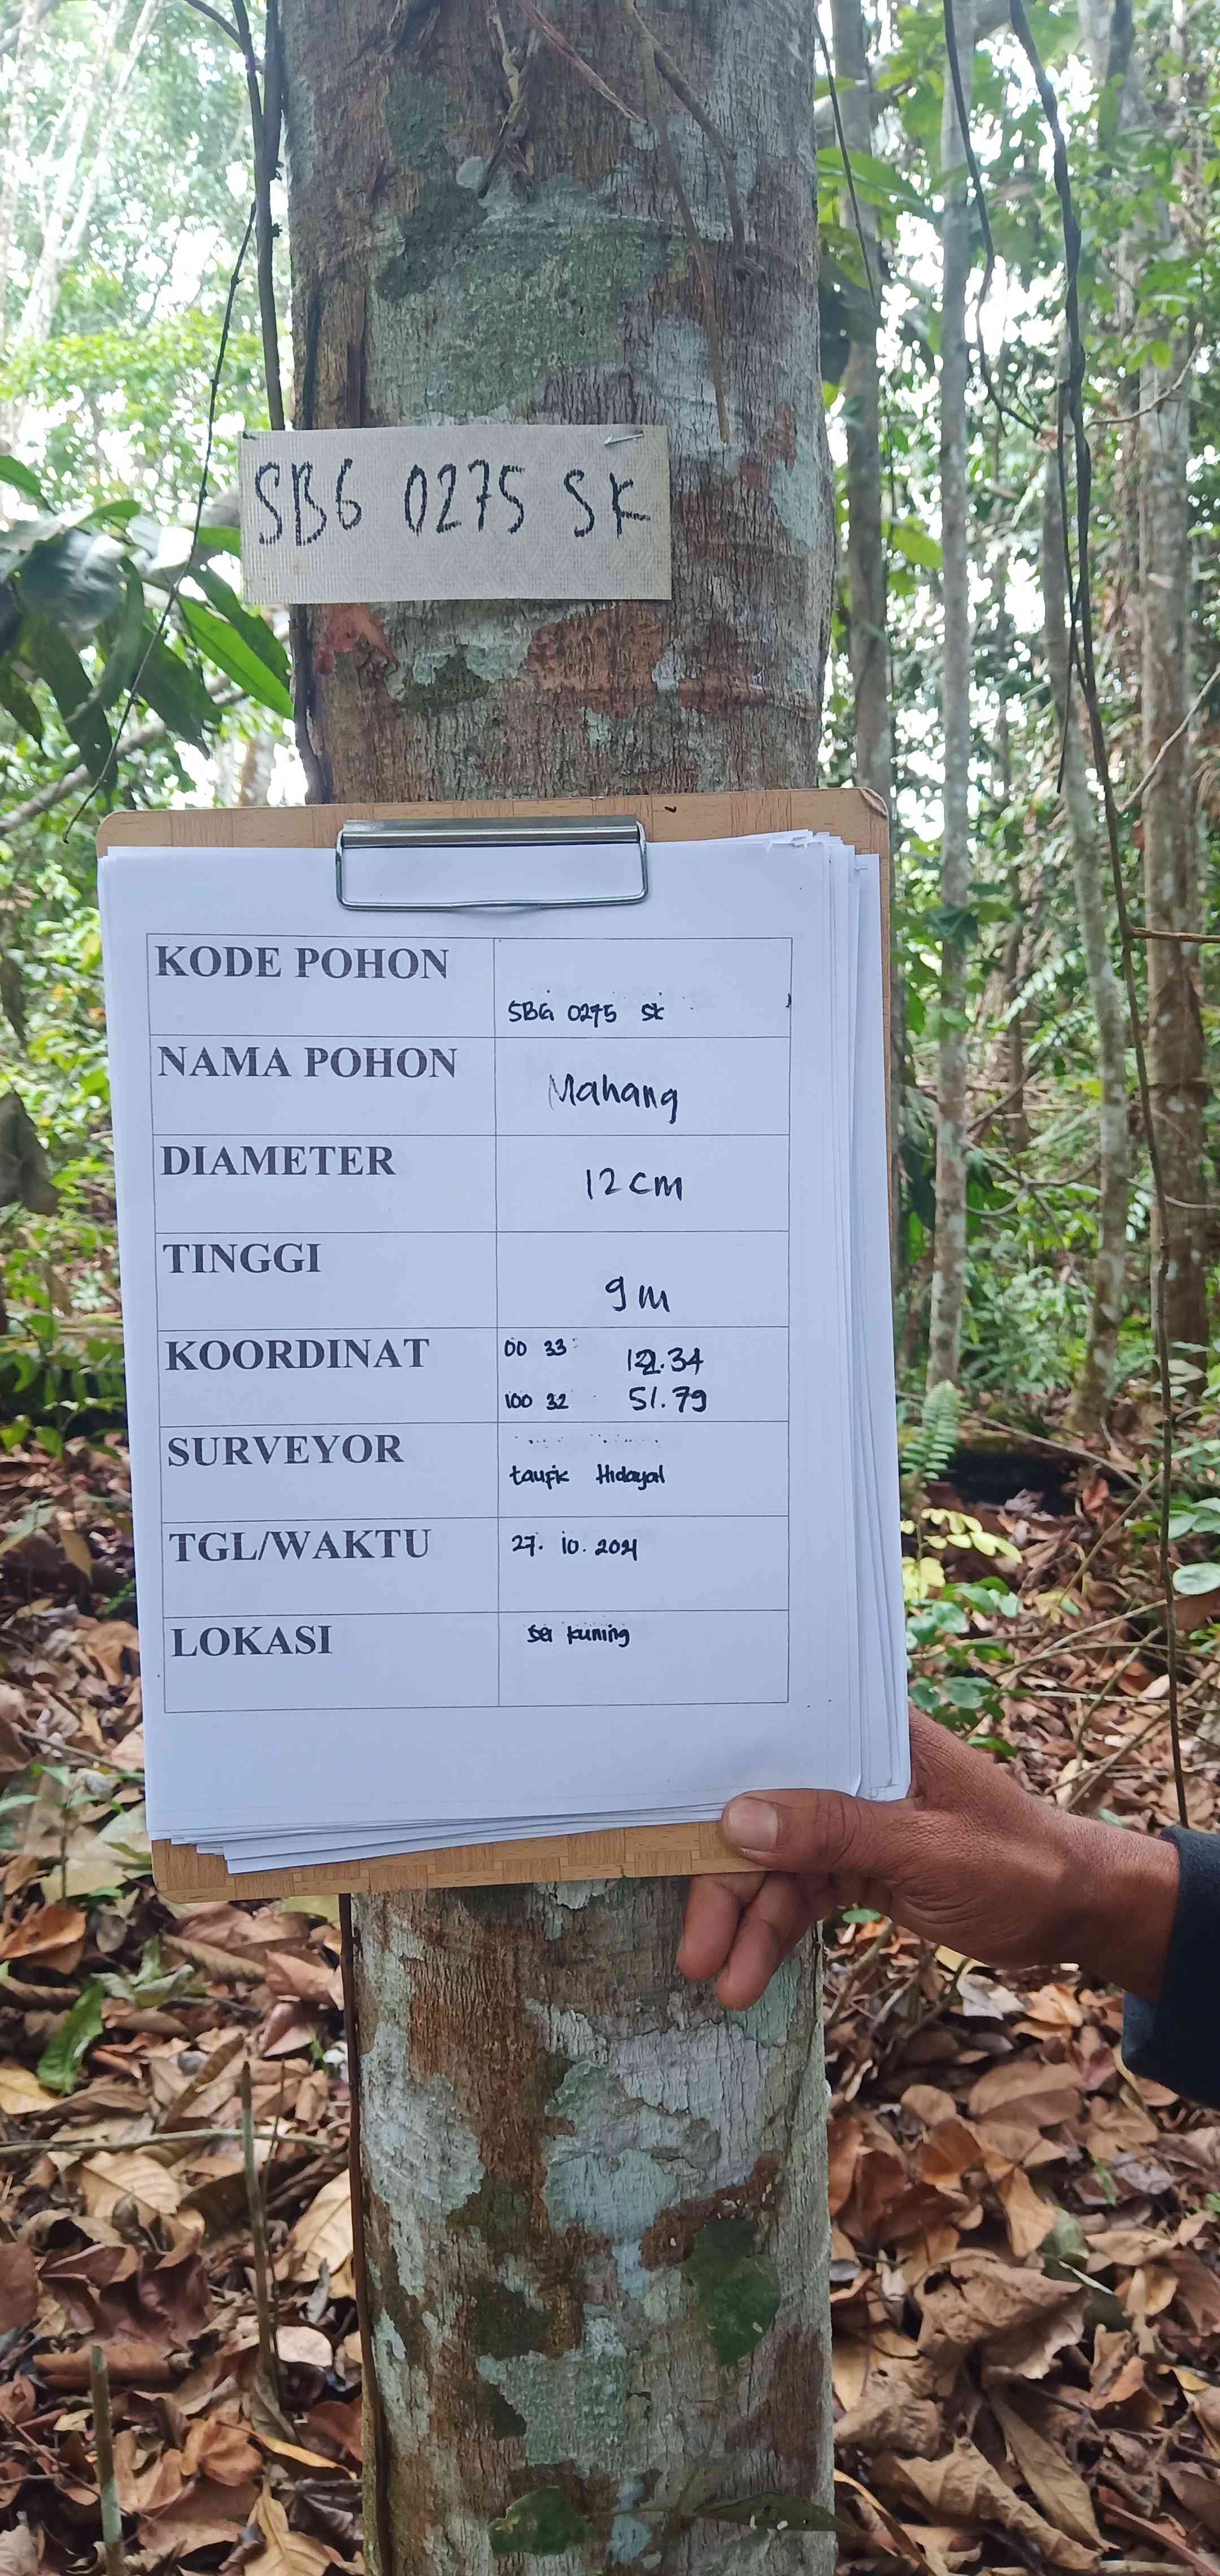 SBG 0275 SK
KODE POHON
SBG 0275 SK
NAMA POHON
Mahang
DIAMETER
12 cm
TINGGI
9 m
KOORDINAT
00 33
100 32 51.79
SURVEYOR
taufik Hidayat
TGL/WAKTU
27. 10. 2021
LOKASI
Sei kuning